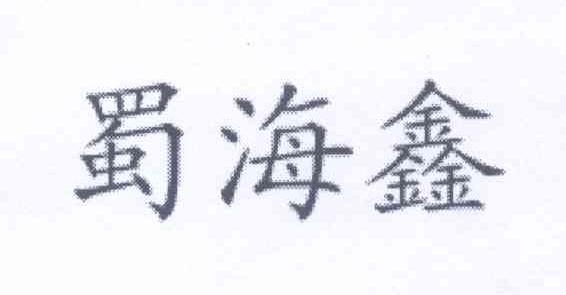 蜀海鑫